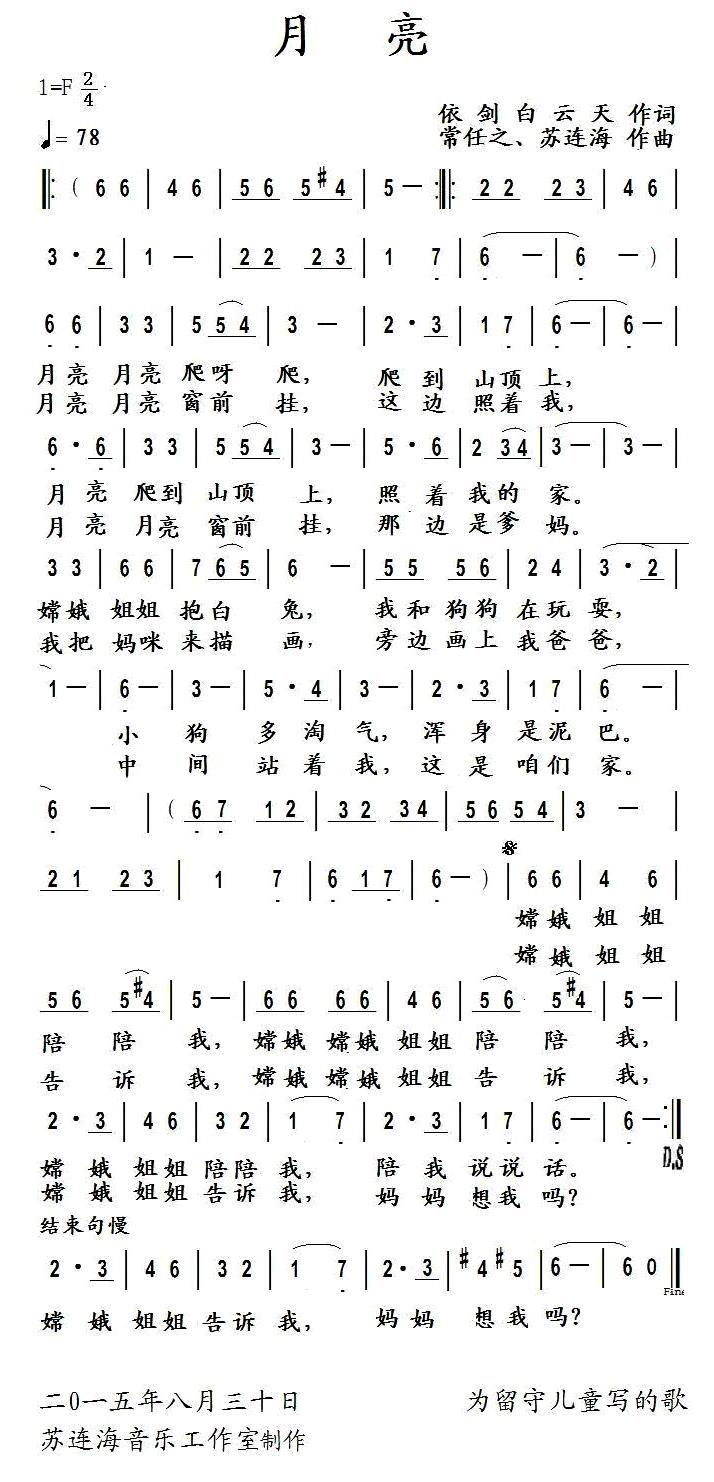 月 亮
1=F 2/4
♩= 78
依剑白云天 作词
常任之、苏连海 作曲
‖: ( 6 6 | 4 6 | 5 6 5 #4 | 5 — :‖: 2 2 2 3 | 4 6 |
3 · 2 | 1 — | 2 2 2 3 | 1 7 | 6 — | 6 — ) |
6 6 | 3 3 | 5 5 4 | 3 — | 2 · 3 | 1 7 | 6 — | 6 — |
月亮 月亮 爬呀 爬， 爬 到 山顶 上，
月亮 月亮 窗前 挂， 这 边 照着 我，
6 · 6 | 3 3 | 5 5 4 | 3 — | 5 · 6 | 2 3 4 | 3 — | 3 — |
月 亮 爬到 山顶 上， 照 着 我的 家。
月 亮 月亮 窗前 挂， 那 边 是爹 妈。
3 3 | 6 6 | 7 6 5 | 6 — | 5 5 5 6 | 2 4 | 3 · 2 |
嫦娥 姐姐 抱白 兔， 我和 狗狗 在玩 耍，
我把 妈咪 来描 画， 旁边 画上 我爸 爸，
1 — | 6 — | 3 — | 5 · 4 | 3 — | 2 · 3 | 1 7 | 6 — |
小 狗 多 淘 气， 浑 身 是泥 巴。
中 间 站 着 我， 这 是 咱们 家。
6 — | ( 6 7 1 2 | 3 2 3 4 | 5 6 5 4 | 3 — |
2 1 2 3 | 1 7 | 6 1 7 | 6 — ) | 𝄋 6 6 | 4 6 |
嫦娥 姐姐
嫦娥 姐姐
5 6 5 #4 | 5 — | 6 6 6 6 | 4 6 | 5 6 5 #4 | 5 — |
陪 陪 我， 嫦娥 嫦娥 姐姐 陪 陪 我，
告 诉 我， 嫦娥 嫦娥 姐姐 告 诉 我，
2 · 3 | 4 6 | 3 2 | 1 7 | 2 · 3 | 1 7 | 6 — | 6 — :‖
D.S
嫦 娥 姐姐 陪陪 我， 陪 我 说说 话。
嫦 娥 姐姐 告诉 我， 妈 妈 想我 吗？
结束句慢
2 · 3 | 4 6 | 3 2 | 1 7 | 2 · 3 | #4 #5 | 6 — | 6 0 ‖
Fine
嫦 娥 姐姐 告诉 我， 妈 妈 想我 吗？
二0一五年八月三十日 为留守儿童写的歌
苏连海音乐工作室制作